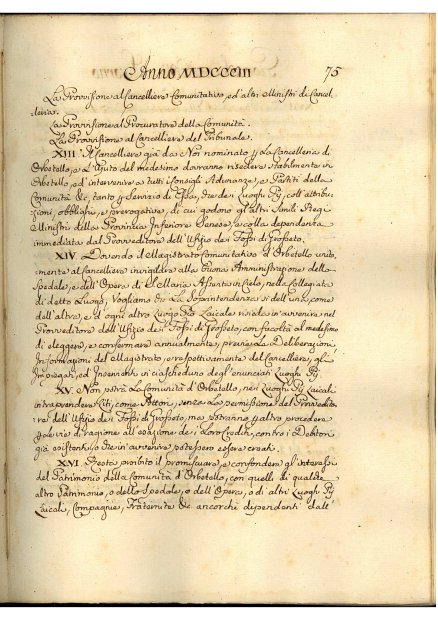 Anno MDCCCIII 75
La Provvisione al Cancelliere Comunitativo, ed altri Ministri di Cancel-
leria.
La Provvisione al Procuratore della Comunità.
La Provvisione al Cancelliere del Tribunale.
XIII. Il Cancelliere già da Noi nominato p la Cancelleria di
Orbetello, e l'Ajuto del medesimo dovranno risedere stabilmente in
Orbetello, ed intervenire a tutti i Consigli, Adunanze, e Partiti della
Comunità &c, tanto p Servizio di Essa, che dei Luoghi Pij, coll'attribu-
zioni, obblighi, e prerogative, di cui godono gli altri Simili Regi
Ministri della Provincia Inferiore Senese, e colla dependenza
immediata dal Provveditore dell'Ufizio dei Fossi di Grosseto.
XIV. Dovendo il Magistrato Comunitativo d'Orbetello unita-
mente al Cancelliere invigilare alla buona Amministrazione dello
Spedale, e dell'Opera di S. Maria Assunta in Cielo, nella Collegiata
di detto Luogo, Vogliamo che la Soprintendenza sì dell'uno, come
dell'altra, e d'ogni altro Luogo Pio Laicale risieda in avvenire nel
Provveditore dell'Ufizio dei Fossi di Grosseto, con facoltà al medesimo
di eleggere, e confermare annualmente, previe le Deliberazioni,
Informazioni del Magistrato, e respettivamente del Cancelliere, gli
Impiegati, ed Inservienti in ciascheduno degl'enunciati Luoghi Pij
XV. Non potrà la Comunità d'Orbetello, nei Luoghi Pij Laicali
intraprendere Liti, come Attori, senza la permissione del Provvedito-
re dell'Ufizio dei Fossi di Grosseto, ma potranno p altro procedere
p le vie di ragione all'esazione dei Loro Crediti, contro i Debitori
già esistenti, o che in avvenire potessero essere creati.
XVI. Resta proibito il promiscuare, e confondere gl'interessi
del Patrimonio della Comunità d'Orbetello, con quelli di qualche
altro Patrimonio, o dello Spedale, o dell'Opera, o di altri Luoghi Pij
Laicali, Compagnie, Fraternite &c ancorchè dipendenti dall'